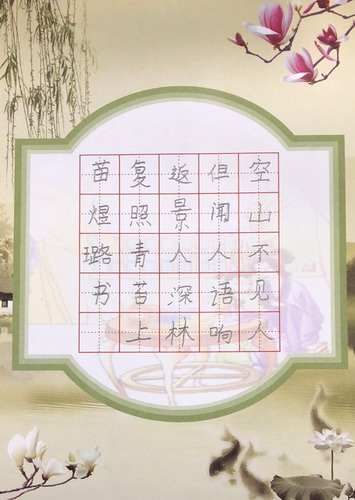 空山不见人
但闻人语响
返景入深林
复照青苔上
苗煜璐书